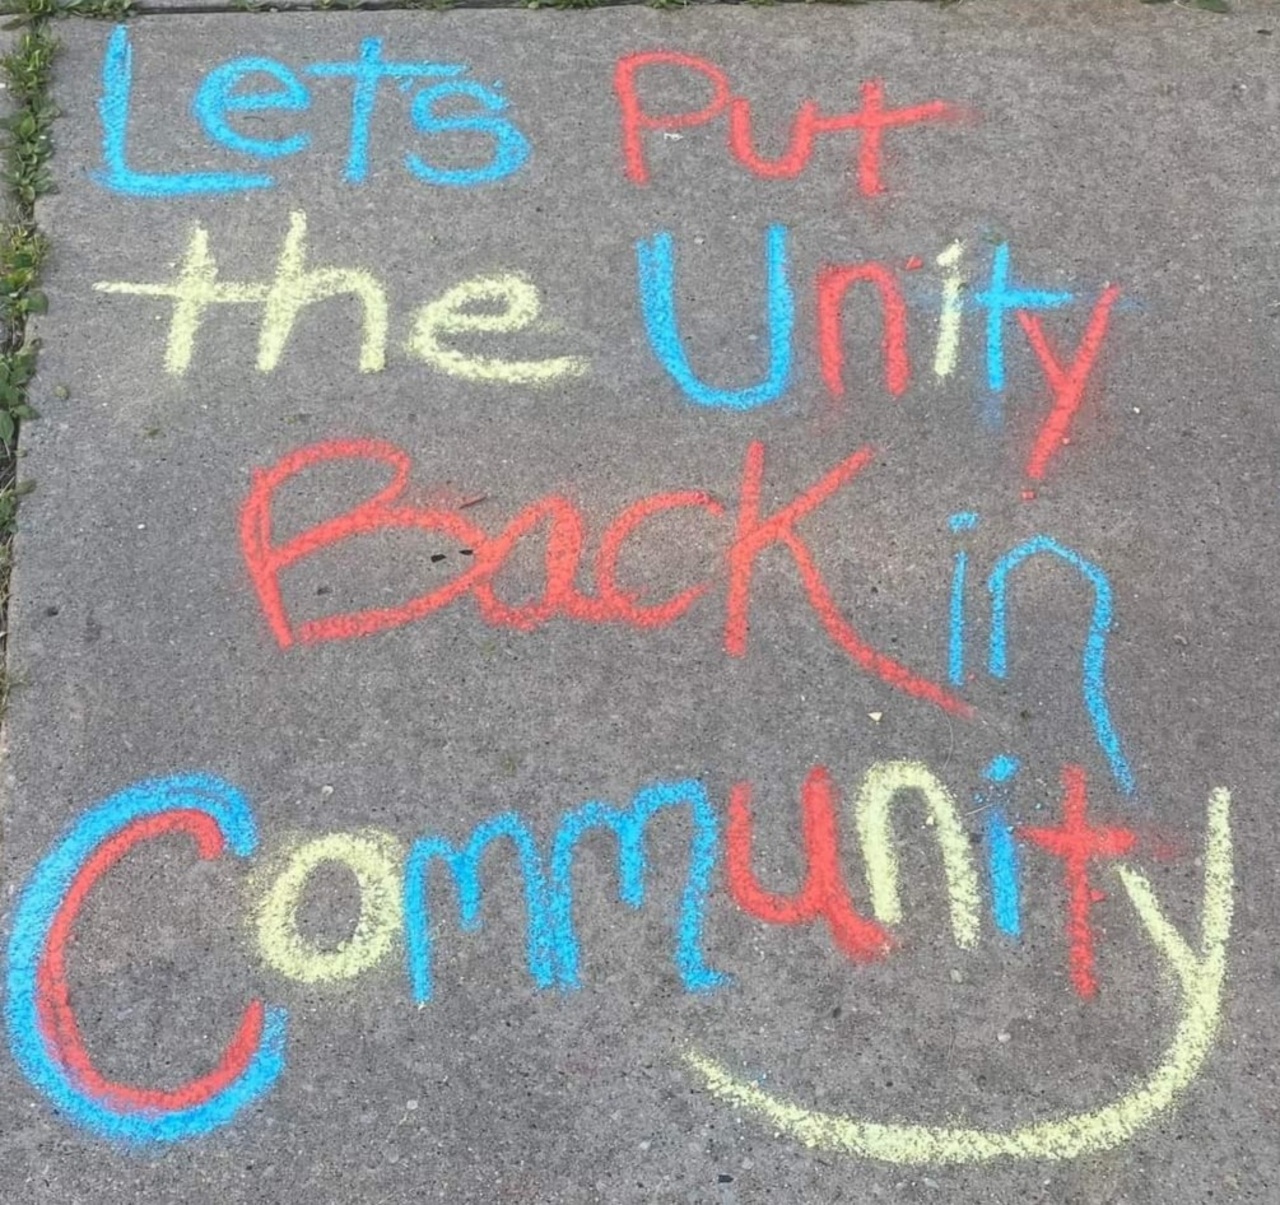 Lets Put
the Unity
Back in
Community